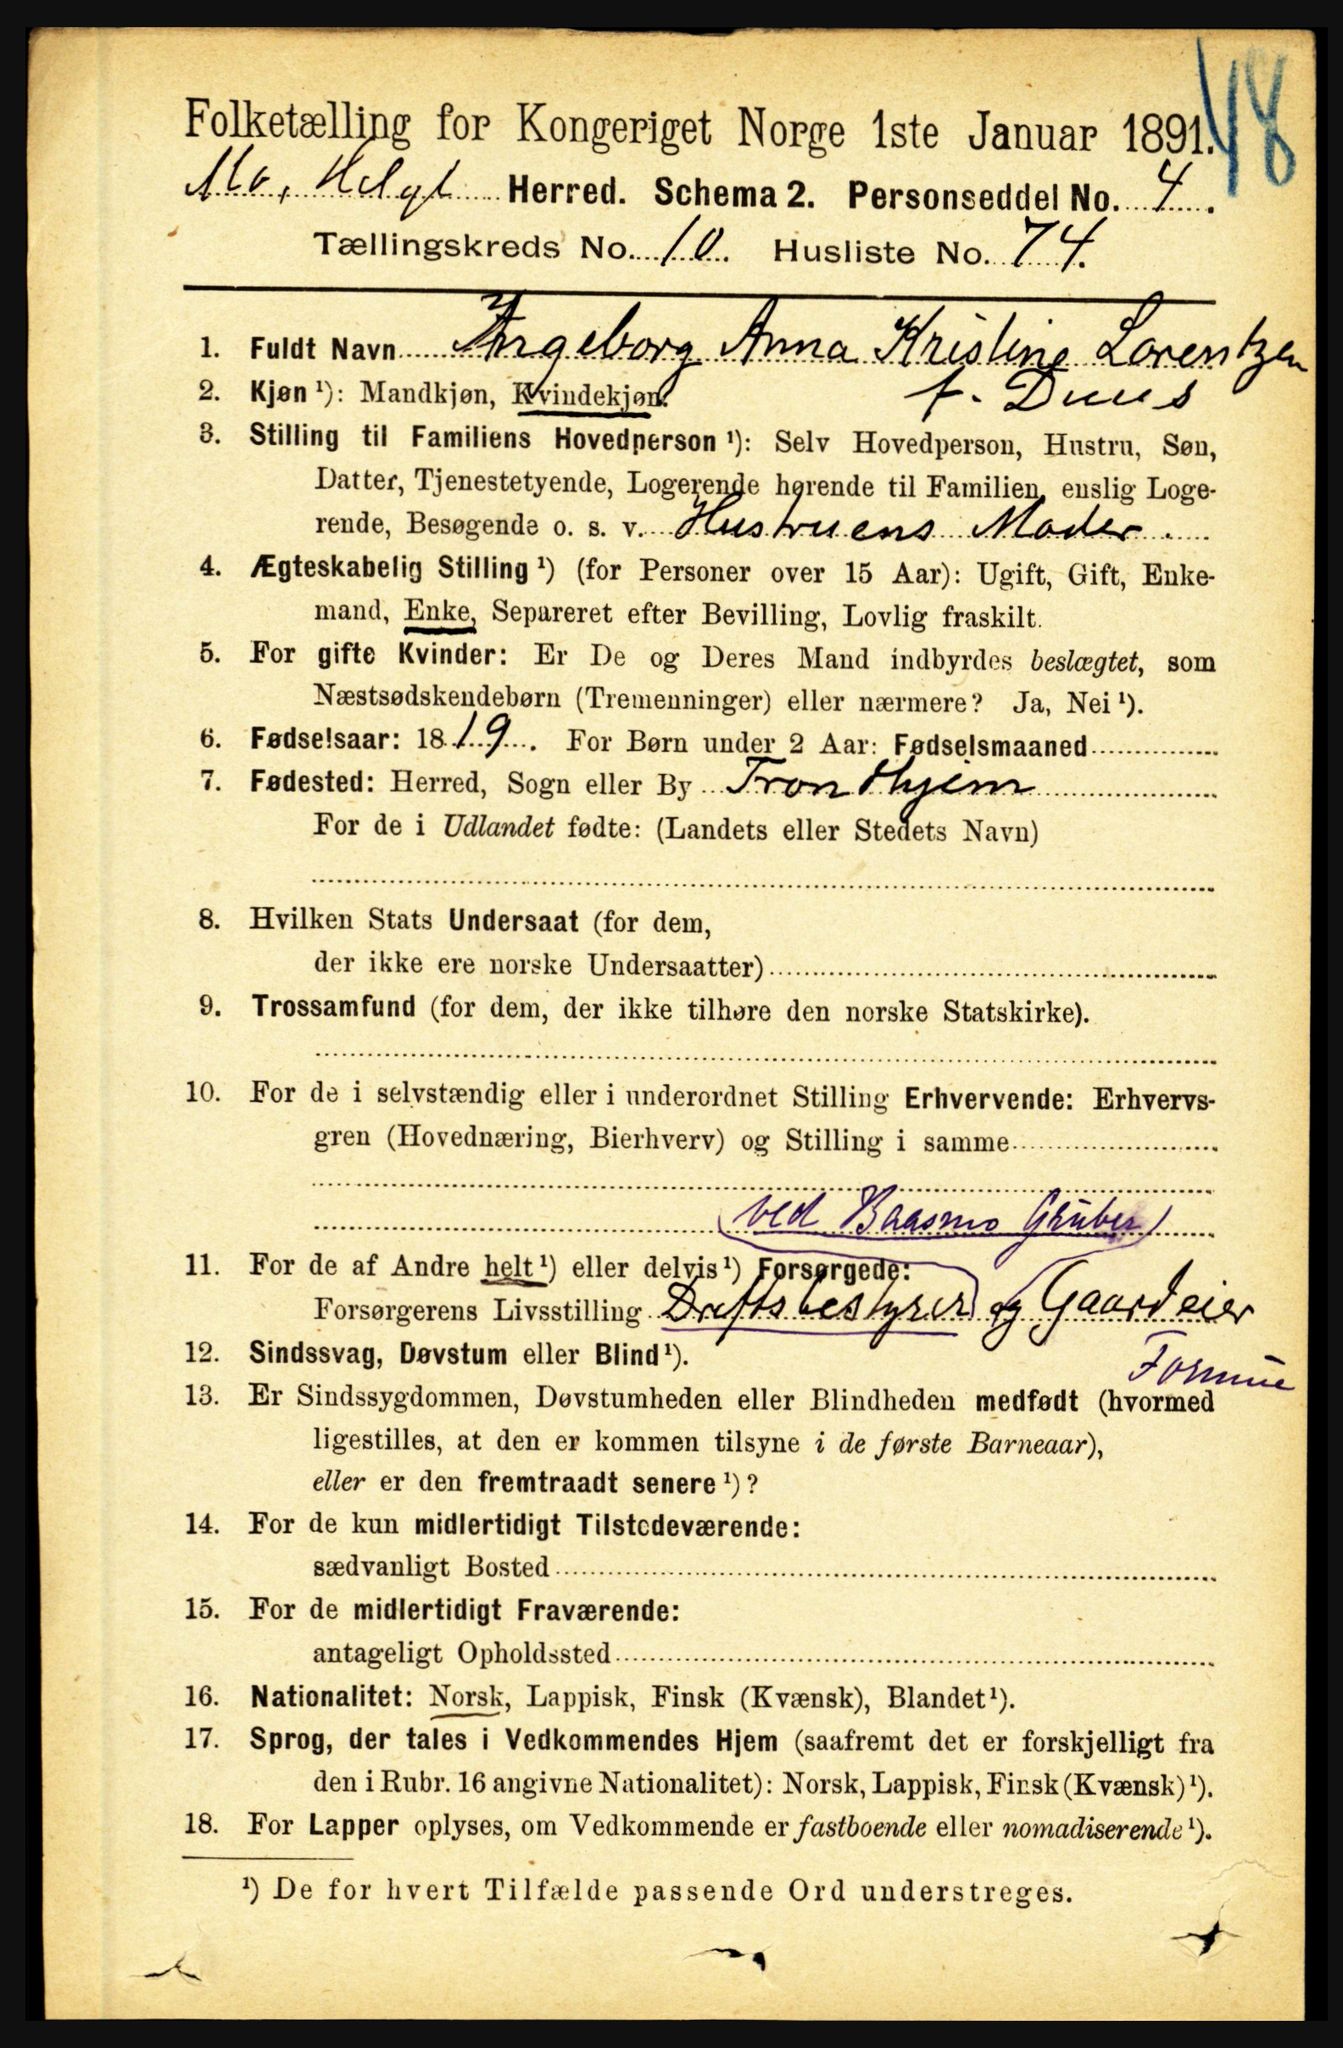 48
Folketælling for Kongeriget Norge 1ste Januar 1891.
Mo, Helgl Herred. Schema 2. Personseddel No. 4.
Tællingskreds No. 10. Husliste No. 74.
1. Fuldt Navn Ingeborg Anna Kristine Lorentzen
f. Duus
2. Kjøn ¹): Mandkjøn, Kvindekjøn.
3. Stilling til Familiens Hovedperson ¹): Selv Hovedperson, Hustru, Søn,
Datter, Tjenestetyende, Logerende hørende til Familien, enslig Loge-
rende, Besøgende o. s. v. Hustruens Moder.
4. Ægteskabelig Stilling ¹) (for Personer over 15 Aar): Ugift, Gift, Enke-
mand, Enke, Separeret efter Bevilling, Lovlig fraskilt.
5. For gifte Kvinder: Er De og Deres Mand indbyrdes beslægtet, som
Næstsødskendebørn (Tremenninger) eller nærmere? Ja, Nei ¹).
6. Fødselsaar: 1819. For Børn under 2 Aar: Fødselsmaaned
7. Fødested: Herred, Sogn eller By Trondhjem
For de i Udlandet fødte: (Landets eller Stedets Navn)
8. Hvilken Stats Undersaat (for dem,
der ikke ere norske Undersaatter)
9. Trossamfund (for dem, der ikke tilhøre den norske Statskirke).
10. For de i selvstændig eller i underordnet Stilling Erhvervende: Erhvervs-
gren (Hovednæring, Bierhverv) og Stilling i samme
(ved Baasmo Gruber)
11. For de af Andre helt ¹) eller delvis ¹) Forsørgede:
Forsørgerens Livsstilling Driftsbestyrer og Gaardeier
Formue
12. Sindssvag, Døvstum eller Blind ¹).
13. Er Sindssygdommen, Døvstumheden eller Blindheden medfødt (hvormed
ligestilles, at den er kommen tilsyne i de første Barneaar),
eller er den fremtraadt senere ¹)?
14. For de kun midlertidigt Tilstedeværende:
sædvanligt Bosted
15. For de midlertidigt Fraværende:
antageligt Opholdssted
16. Nationalitet: Norsk, Lappisk, Finsk (Kvænsk), Blandet ¹).
17. Sprog, der tales i Vedkommendes Hjem (saafremt det er forskjelligt fra
den i Rubr. 16 angivne Nationalitet): Norsk, Lappisk, Finsk (Kvænsk) ¹).
18. For Lapper oplyses, om Vedkommende er fastboende eller nomadiserende ¹).
¹) De for hvert Tilfælde passende Ord understreges.